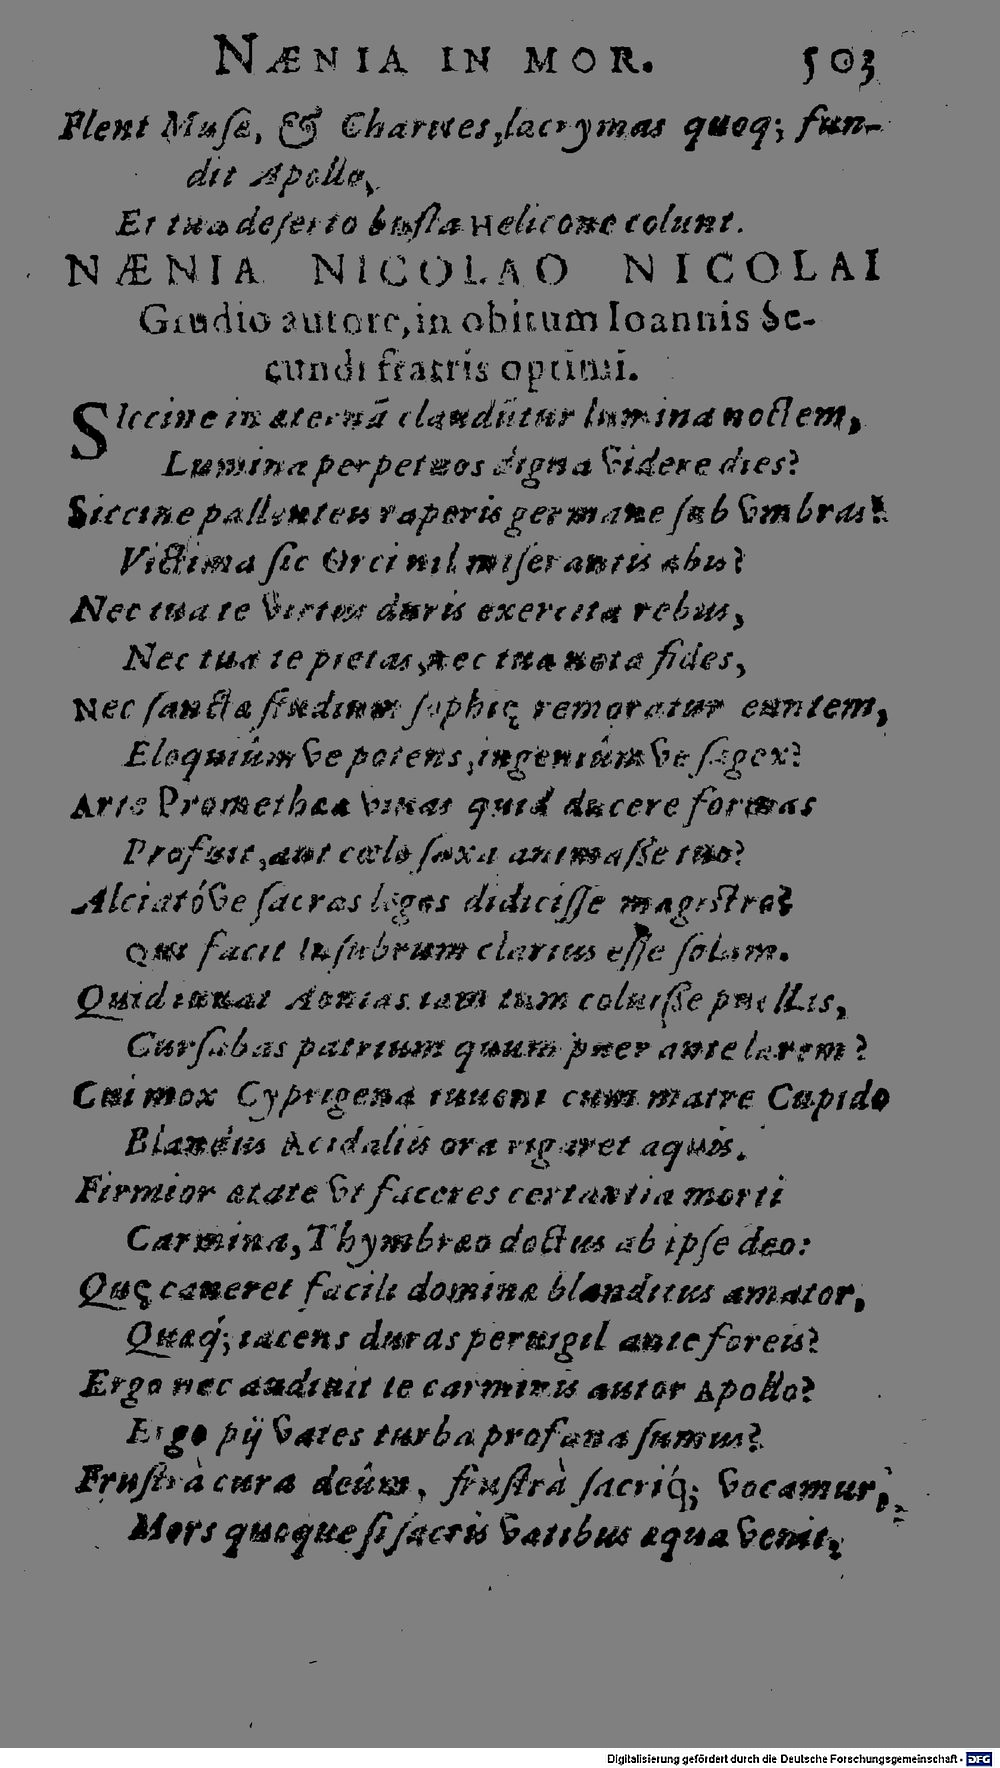 NÆNIA IN MOR. 503
Flent Musæ, & Charites, lacrymas quoq; fun-
dit Apollo,
Et tua deserto busta Helicone colunt.
NÆNIA NICOLAO NICOLAI
Grudio autore, in obitum Ioannis Se-
cundi fratris optimi.
SIccine in æternã claudũtur lumina noctem,
Lumina perpetuos digna videre dies?
Siccine pallenteis raperis germane sub vmbras?
Victima sic Orci nil miserantis abis?
Nec tua te virtus duris exercita rebus,
Nec tua te pietas, nec tua nota fides,
Nec sancta studium sophię remoratur euntem,
Eloquiûm ve potens, ingeniûm ve sagax?
Arte Promethæa viuas quid ducere formas
Profuit, aut cœlo saxa animasse tuo?
Alciatóve sacras leges didicisse magistro?
Qui facit Insubrum clarius esse solum.
Quid iuuat Aonias iam tum coluisse puellas,
Cursabas patrium quum puer ante larem?
Cui mox Cyprigena iuueni cum matre Cupido
Blandus Acidaliis ora rigaret aquis.
Firmior ætate vt faceres certantia morti
Carmina, Thymbræo doctus ab ipse deo:
Quę caneret facili dominæ blanditus amator,
Quæq́; iacens duras peruigil ante foreis?
Ergo nec audiuit te carminis autor Apollo?
Ergo pij vates turba profana sumus?
Frustrà cura deûm, frustrà sacríq; vocamur,
Mors quoque si sacris vatibus æqua venit?
Digitalisierung gefördert durch die Deutsche Forschungsgemeinschaft - DFG